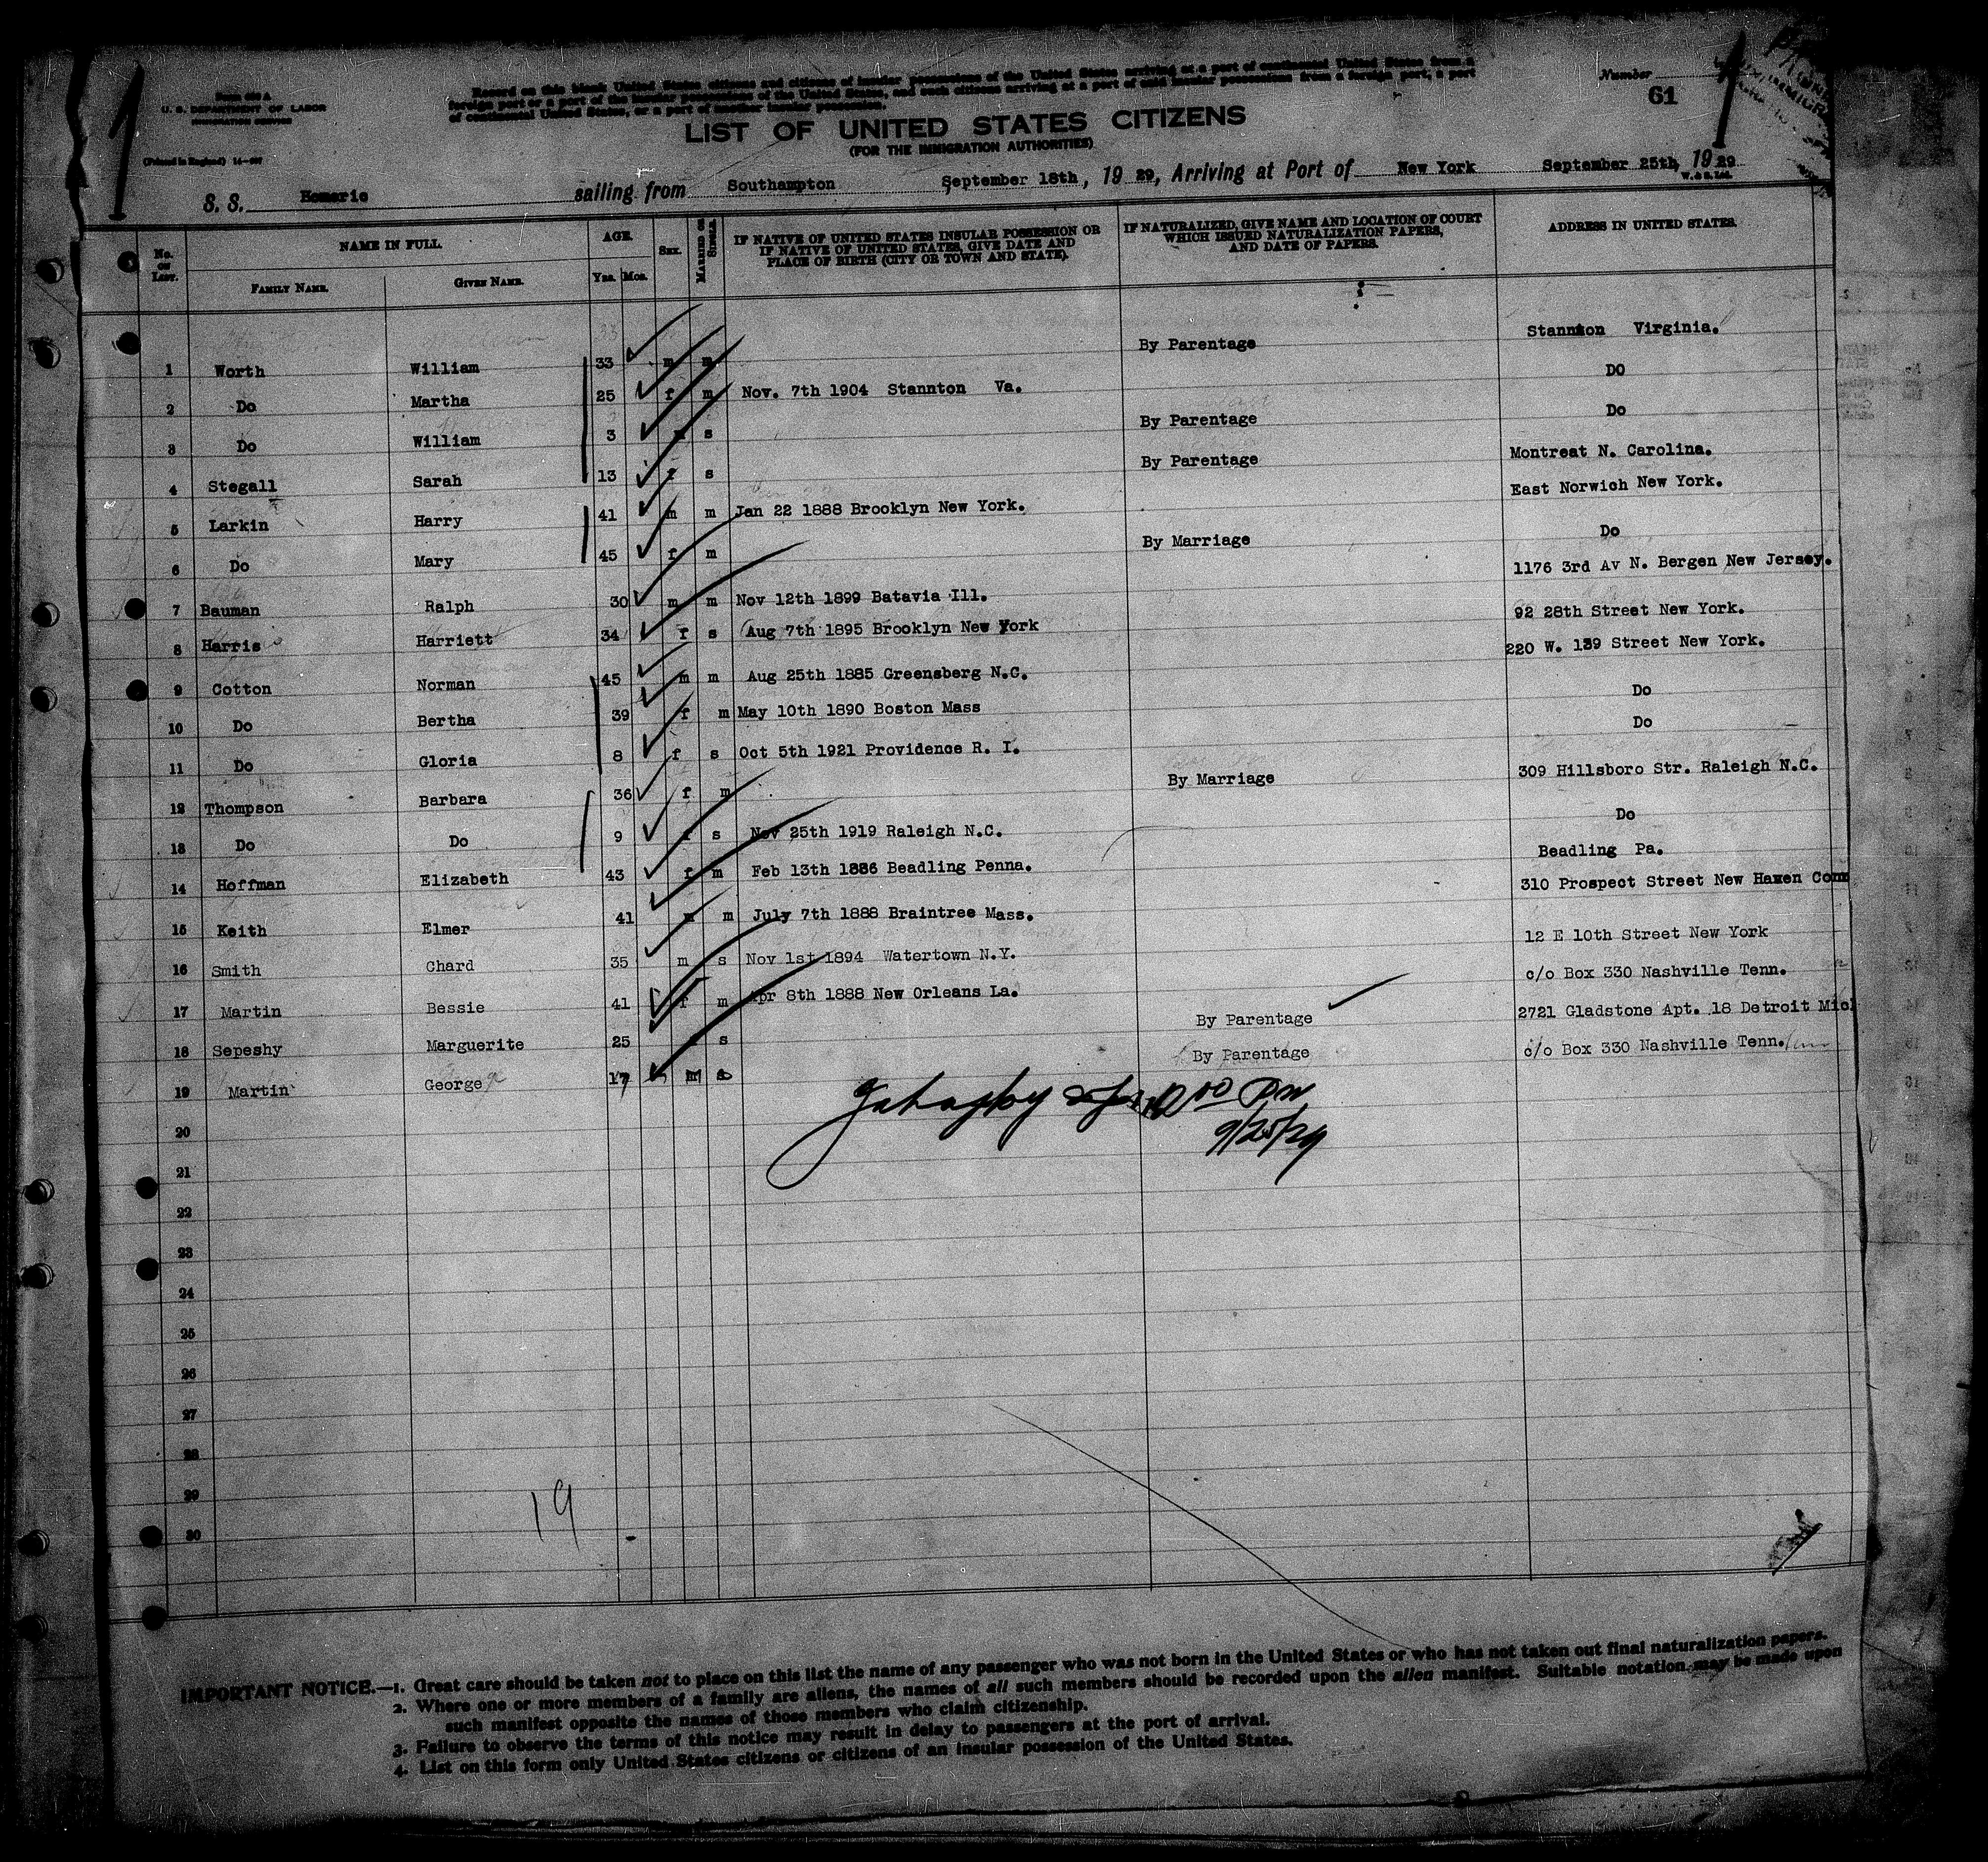 Form 630 A
U. S. DEPARTMENT OF LABOR
IMMIGRATION SERVICE
(Printed in England)
Record on this blank United States citizens and citizens of insular possessions of the United States arriving at a port of continental United States from a
foreign port or a port of the insular possessions of the United States, and such citizens arriving at a port of said insular possessions from a foreign port, a port
of continental United States, or a port of another insular possession.
Number
61
LIST OF UNITED STATES CITIZENS
(FOR THE IMMIGRATION AUTHORITIES)
S. S. Homeric sailing from Southampton September 18th, 19 29, Arriving at Port of New York September 25th, 19 29
W. & S. Ltd.
No. on List. NAME IN FULL. AGE. SEX. MARRIED OR SINGLE. IF NATIVE OF UNITED STATES INSULAR POSSESSION OR IF NATIVE OF UNITED STATES, GIVE DATE AND PLACE OF BIRTH (CITY OR TOWN AND STATE). IF NATURALIZED, GIVE NAME AND LOCATION OF COURT WHICH ISSUED NATURALIZATION PAPERS, AND DATE OF PAPERS. ADDRESS IN UNITED STATES.
FAMILY NAME. GIVEN NAME. Yrs. Mos.
1 Worth William 33 m m By Parentage Stannton Virginia.
2 Do Martha 25 f m Nov. 7th 1904 Stannton Va. DO
3 Do William 3 s By Parentage Do
4 Stegall Sarah 13 f s By Parentage Montreat N. Carolina.
5 Larkin Harry 41 m m Jan 22 1888 Brooklyn New York. East Norwich New York.
6 Do Mary 45 f m By Marriage Do
7 Bauman Ralph 30 m m Nov 12th 1899 Batavia Ill. 1176 3rd Av N. Bergen New Jersey.
8 Harris Harriett 34 f s Aug 7th 1895 Brooklyn New York 92 28th Street New York.
9 Cotton Norman 45 m m Aug 25th 1885 Greensberg N.C. 220 W. 139 Street New York.
10 Do Bertha 39 f m May 10th 1890 Boston Mass Do
11 Do Gloria 8 f s Oct 5th 1921 Providence R. I. Do
12 Thompson Barbara 36 f m By Marriage 309 Hillsboro Str. Raleigh N.C.
13 Do Do 9 f s Nov 25th 1919 Raleigh N.C. Do
14 Hoffman Elizabeth 43 f m Feb 13th 1886 Beadling Penna. Beadling Pa.
15 Keith Elmer 41 m July 7th 1888 Braintree Mass. 310 Prospect Street New Haven Conn
16 Smith Chard 35 m s Nov 1st 1894 Watertown N.Y. 12 E 10th Street New York
17 Martin Bessie 41 f m Apr 8th 1888 New Orleans La. c/o Box 330 Nashville Tenn.
18 Sepeshy Marguerite 25 s By Parentage 2721 Gladstone Apt. 18 Detroit Mich
19 Martin George 17 m s By Parentage c/o Box 330 Nashville Tenn.
20
9/25/29
21
22
23
24
25
26
27
28
29
19
30
IMPORTANT NOTICE.—1. Great care should be taken not to place on this list the name of any passenger who was not born in the United States or who has not taken out final naturalization papers.
2. Where one or more members of a family are aliens, the names of all such members should be recorded upon the alien manifest. Suitable notation may be made upon
such manifest opposite the names of those members who claim citizenship.
3. Failure to observe the terms of this notice may result in delay to passengers at the port of arrival.
4. List on this form only United States citizens or citizens of an insular possession of the United States.